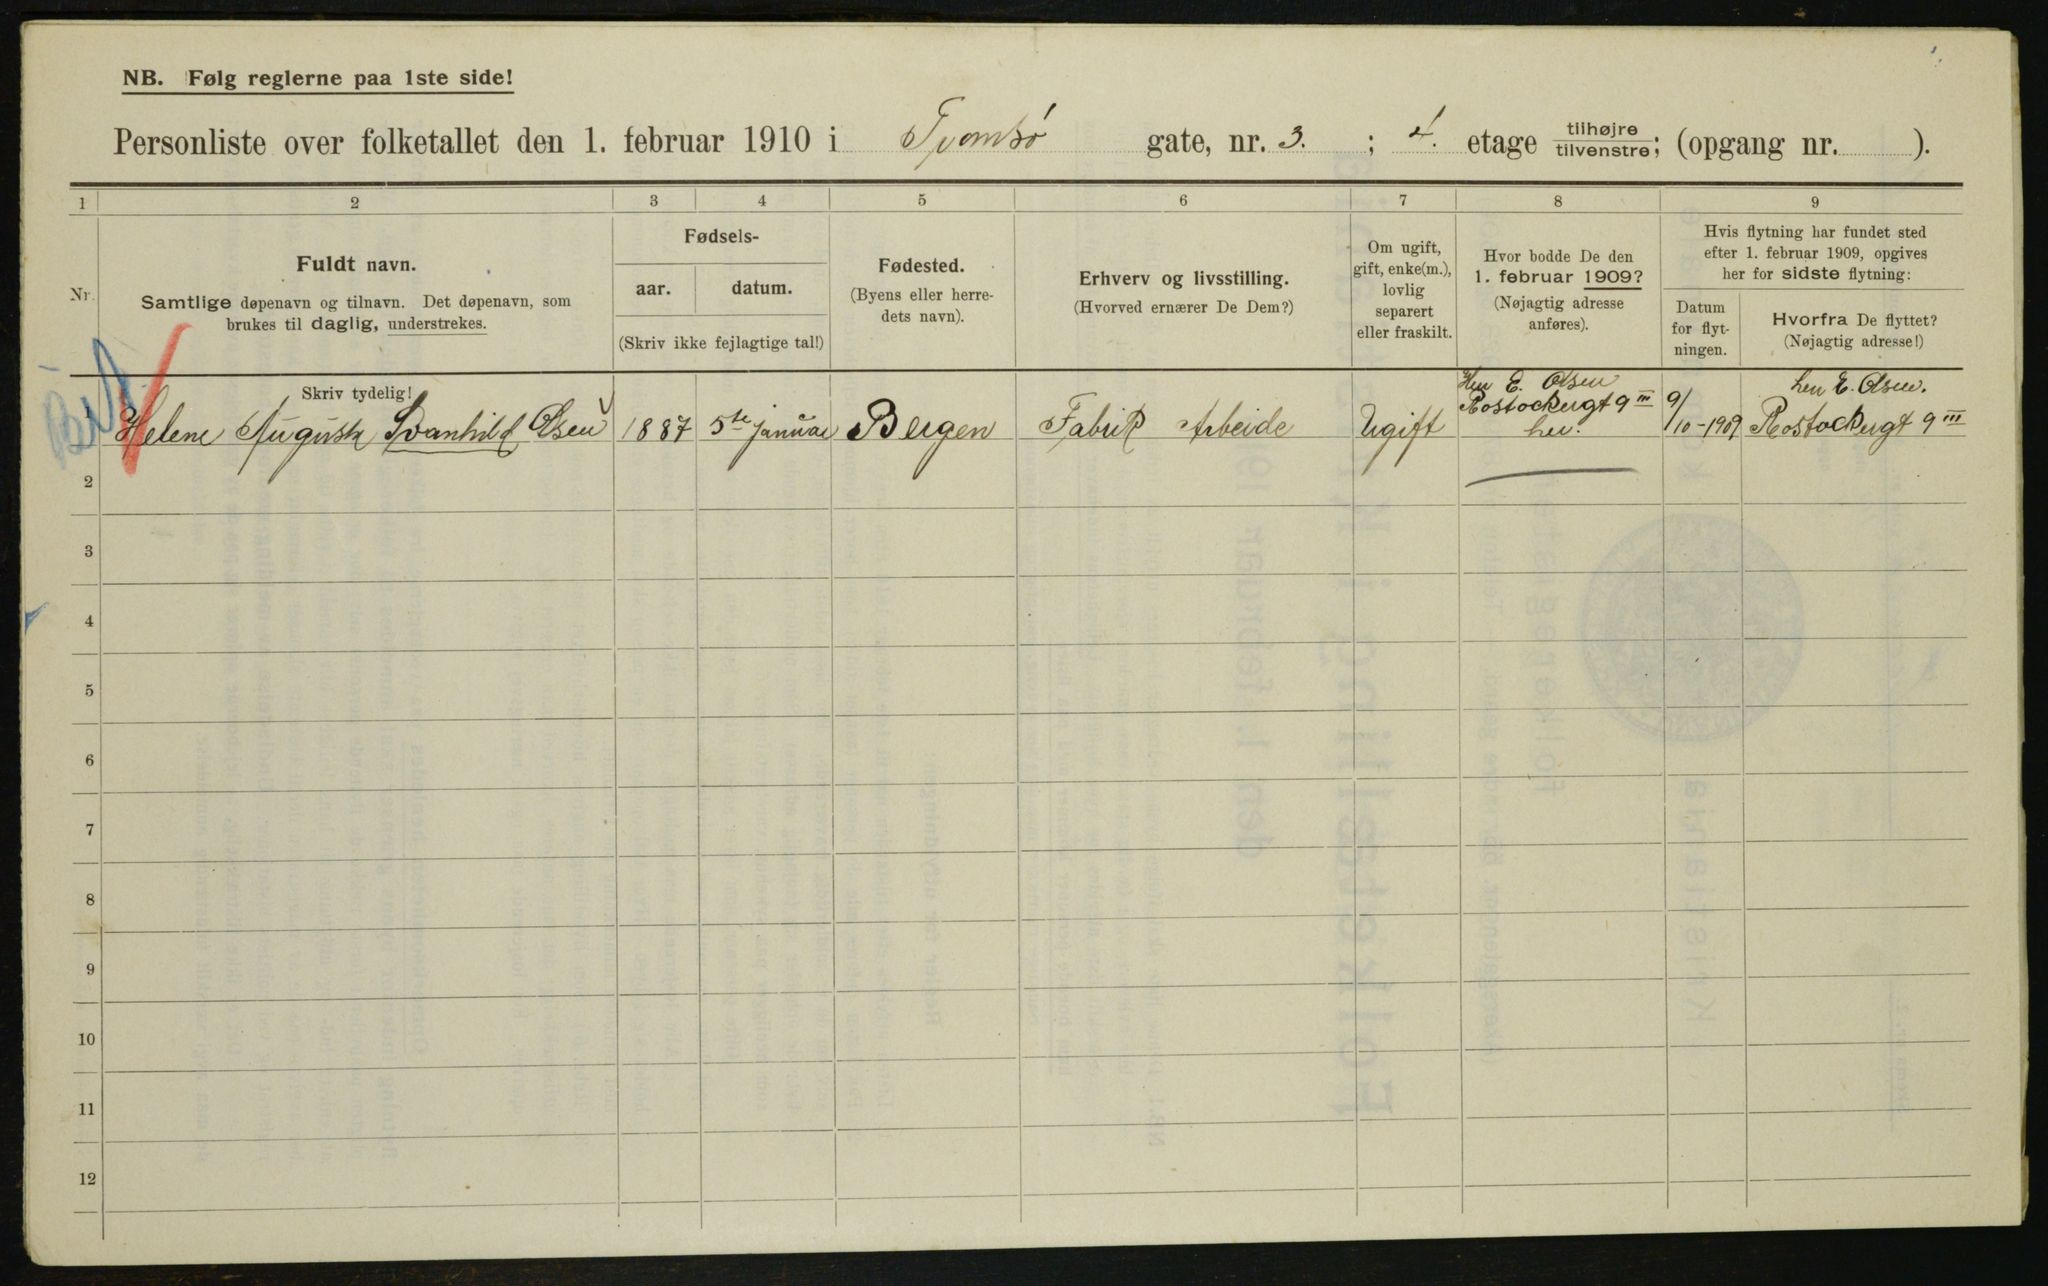 NB. Følg reglerne paa 1ste side!
Personliste over folketallet den 1. februar 1910 i Tromsø gate, nr. 3. ; 4. etage tilhøjre/tilvenstre; (opgang nr. ).
1 2 3 4 5 6 7 8 9
Nr.
Fuldt navn.
Samtlige døpenavn og tilnavn. Det døpenavn, som
brukes til daglig, understrekes.
Fødsels-
aar. datum.
(Skriv ikke fejlagtige tal!)
Fødested.
(Byens eller herre-
dets navn).
Erhverv og livsstilling.
(Hvorved ernærer De Dem?)
Om ugift,
gift, enke(m.),
lovlig
separert
eller fraskilt.
Hvor bodde De den
1. februar 1909?
(Nøjagtig adresse
anføres).
Hvis flytning har fundet sted
efter 1. februar 1909, opgives
her for sidste flytning:
Datum
for flyt-
ningen.
Hvorfra De flyttet?
(Nøjagtig adresse!)
Skriv tydelig!
1 Helene Augusta Svanhild Olsen 1887 5te januar Bergen Fabrik Arbeide Ugift
Hen E. Olsen
Rostockergt 9 III
her.
9/10-1909
hen E. Olsen.
Rostockergt 9 III
2
3
4
5
6
7
8
9
10
11
12